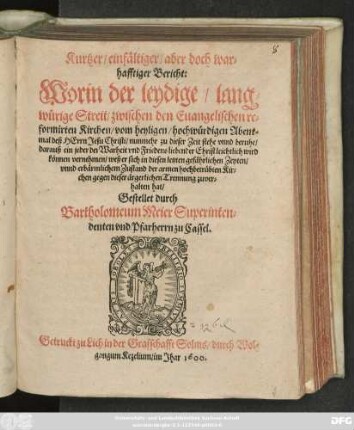 8
Kurtzer/ einfältiger/ aber doch war-
hafftiger Bericht:
Worin der leydige/ lang-
würige Streit/ zwischen den Euangelischen re-
formirten Kirchen/ vom heyligen/ hochwürdigen Abent-
mal deß HErrn Jesu Christi/ nunmehr zu dieser Zeit stehe vnnd beruhe/
darauß ein jeder der Warheit vnd Friedens liebender Christ leichtlich wird
können vernehmen/ weß er sich in diesen letzten gefährlichen Zeyten/
vnnd erbärmlichem Zustand der armen hochbetrübten Kir-
chen gegen dieser ärgerlichen Trennung zuver-
halten hat/
Gestellet durch
Bartholomeum Meier Superinten-
denten vnd Pfarherrn zu Cassel.
Getruckt zu Lich in der Graffschafft Solms/ durch Wol-
gangum Kezelium/ im Jhar 1600.
DFG